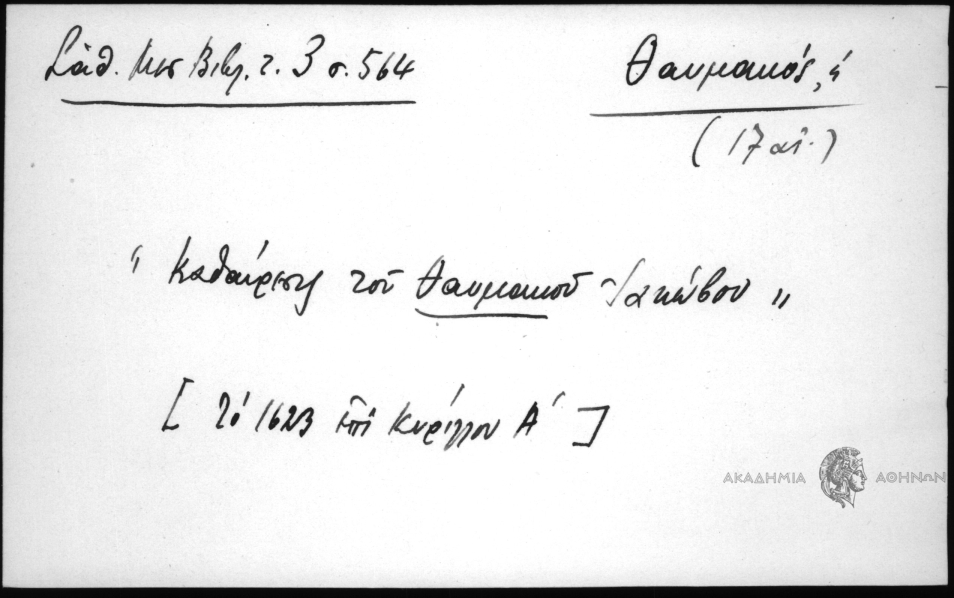 Σάθ. Μεσ Βιβλ. τ. 3 σ. 564
Θαυμακός, ὁ
(17 αἰ.)
“ Καθαίρεσις τοῦ Θαυμακοῦ Ἰακώβου ”
[ τὸ 1623 ἐπὶ Κυρίλλου Α΄ ]
ΑΚΑΔΗΜΙΑ ΑΘΗΝΩΝ